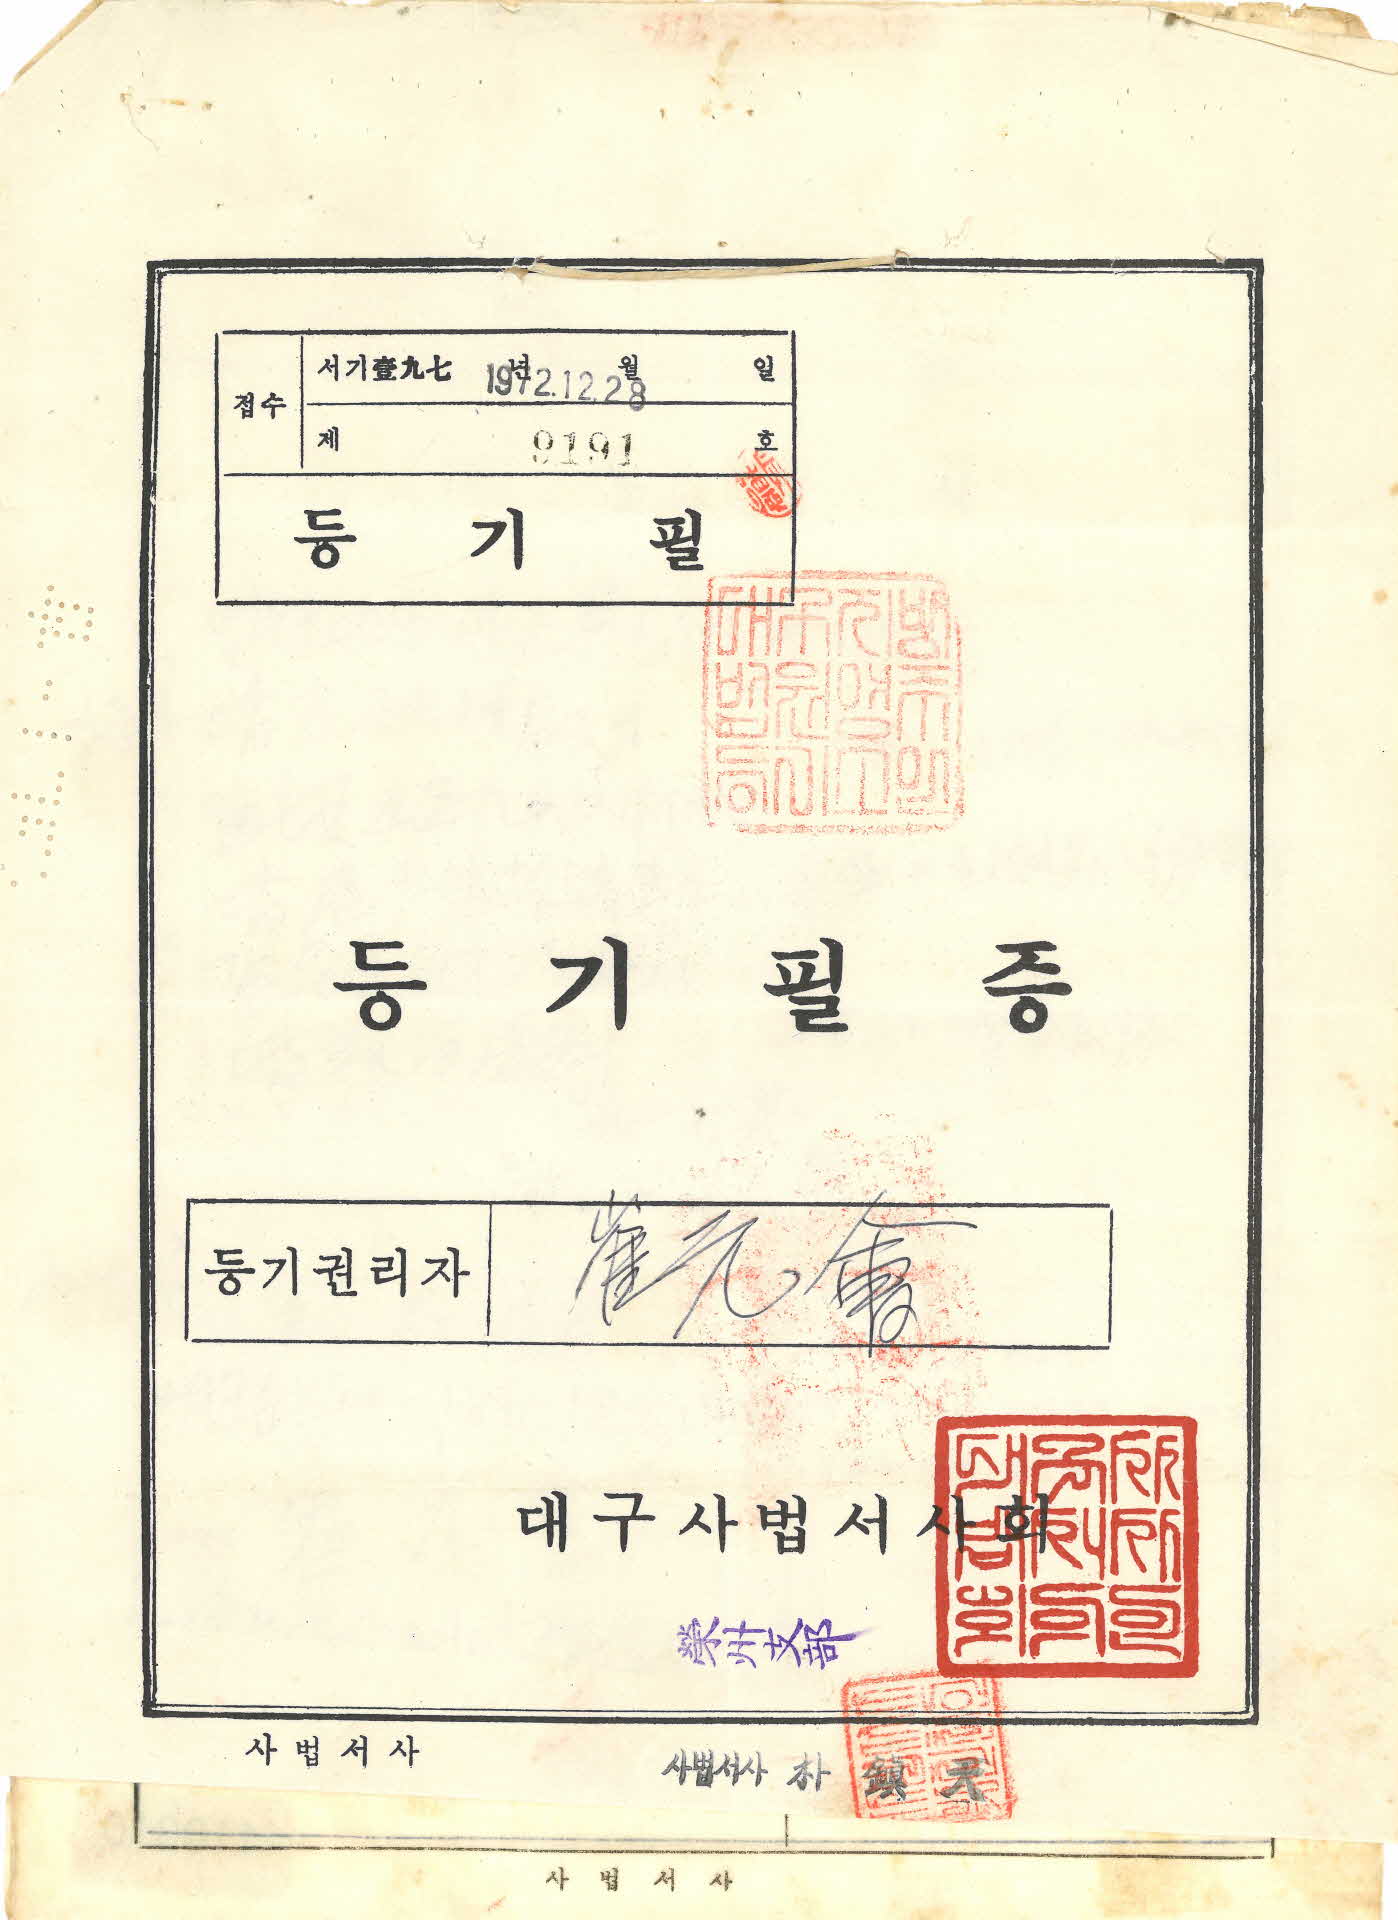 접수
서기壹九七 년 월 일
1972.12.28
제 9191 호
등 기 필
대구지방
법원영주
등기소인
등 기 필 증
등기권리자 崔元
대구사법서사회
榮州支部
사법서사
사법서사 朴 鎮 天
사 법 서 사